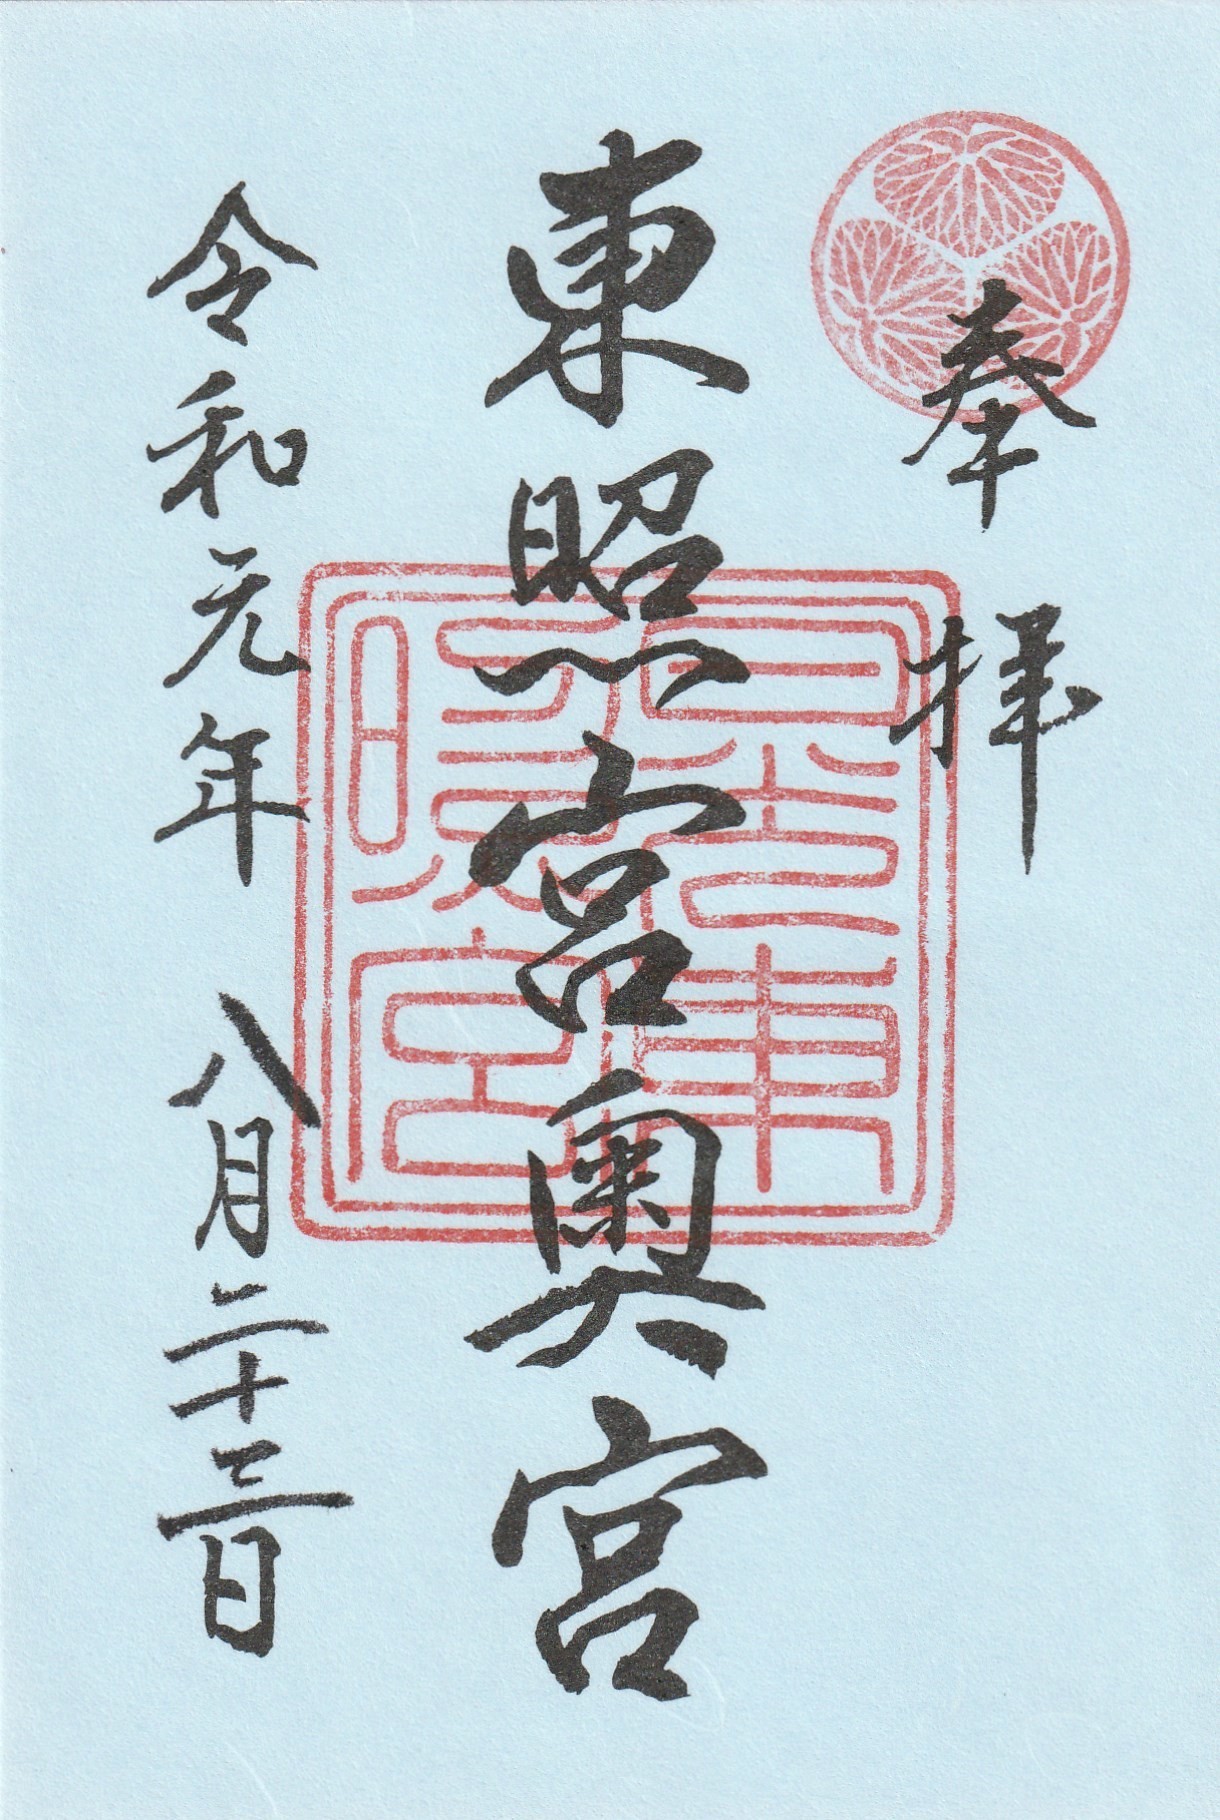 奉拝
東照宮奥宮
令和元年八月二十三日
日光東照宮